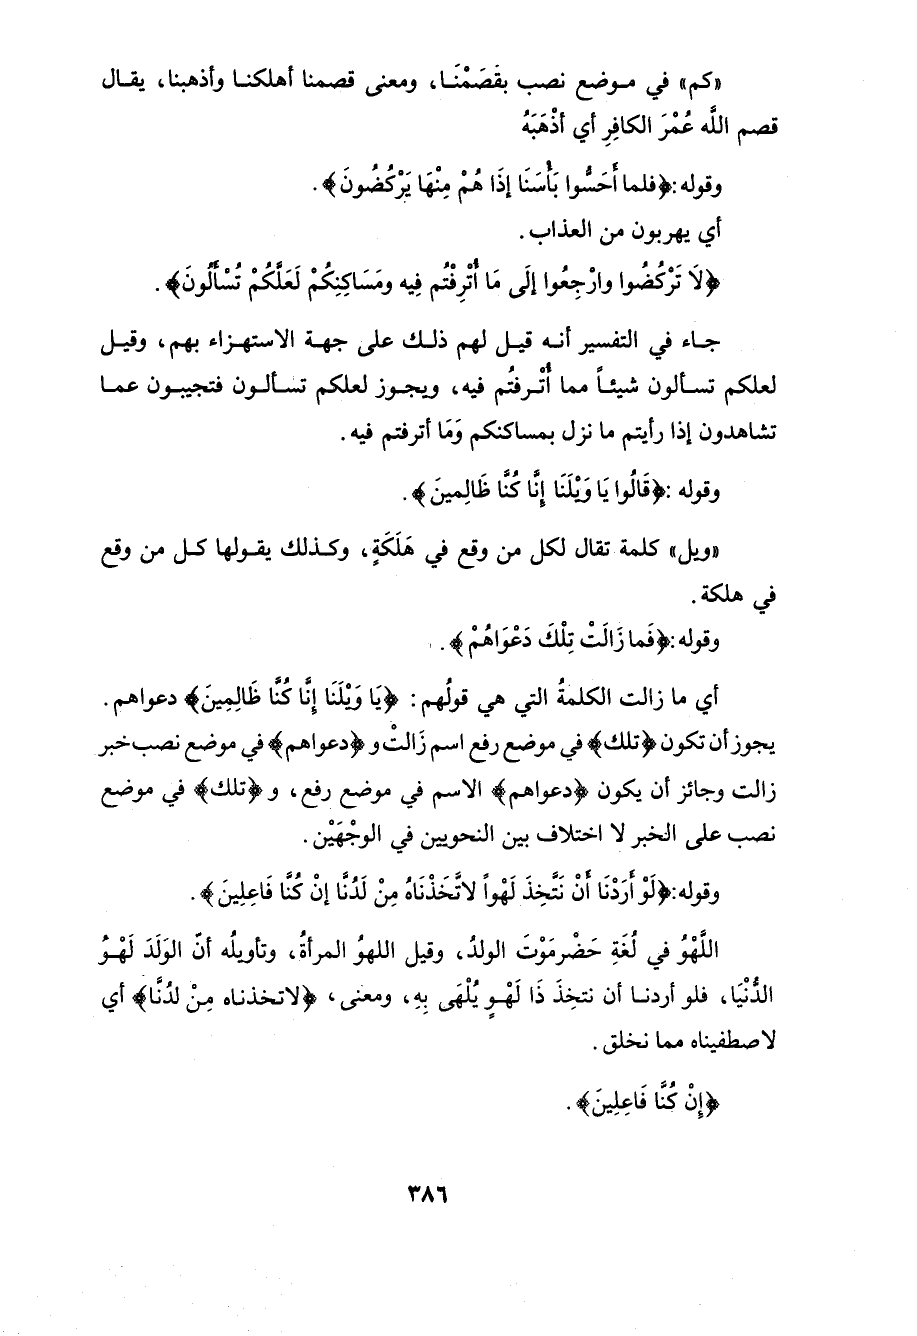 «كم» في مـوضع نصب بقَصَمْنَـا، ومعنى قصمنا أهلكنـا وأذهبنا، يقـال
قصم اللَّه عُمْرَ الكافِرِ أي أذْهَبَهُ
وقوله: ﴿فلما أَحَسُّوا بَأْسَنَا إذَا هُمْ مِنْهَا يَرْكُضُونَ﴾.
أي يهربون من العذاب.
﴿لَا تَرْكُضُوا وارْجِعُوا إلَى مَا أُتْرِفْتُم فِيه ومَسَاكِنِكُمْ لَعَلَّكُمْ تُسْأَلُونَ﴾.
جـاء في التفسير أنـه قيـل لهم ذلـك على جهـة الاستهـزاء بهم، وقيـل
لعلكم تسـألون شيئـاً مما أُتْـرفتُم فيه، ويجـوز لعلكم تسـألـون فتجيبـون عمـا
تشاهدون إذا رأيتم ما نزل بمساكنكم وَمَا أترفتم فيه.
وقوله: ﴿قَالُوا يَا وَيْلَنَا إنَّا كُنَّا ظَالِمينَ﴾.
«ويل» كلمة تقال لكل من وقع في هَلَكَةٍ، وكـذلك يقـولها كـل من وقع
في هلكة.
وقوله: ﴿فَما زَالَتْ تِلْكَ دَعْوَاهُمْ﴾.
أي ما زالت الكلمةُ التي هي قولُهم: ﴿يَا وَيْلَنَا إنَّا كُنَّا ظَالِمِينَ﴾ دعواهم.
يجوز أن تكون ﴿تلك﴾ في موضع رفع اسم زَالتْ و ﴿دعواهم﴾ في موضع نصب خبر
زالت وجائز أن يكون ﴿دعواهم﴾ الاسم في موضع رفع، و ﴿تلك﴾ في موضع
نصب على الخبر لا اختلاف بين النحويين في الوجْهَيْن.
وقوله: ﴿لَوْ أَرَدْنَا أَنْ نَتَّخِذَ لَهْواً لاتَّخَذْنَاهُ مِنْ لَدُنَّا إنْ كُنَّا فَاعِلِينَ﴾.
اللَّهْوُ في لُغَةِ حَضْرمَوْتَ الولدُ، وقيل اللهوُ المرأةُ، وتأويلُه أنّ الوَلَدَ لَهْـوُ
الدُّنْيَا، فلو أردنـا أن نتخِذَ ذَا لَهْـوٍ يُلْهَى بِهِ، ومعنى، ﴿لاتخذناه مِنْ لدُنَّا﴾ أي
لاصطفيناه مما نخلق.
﴿إنْ كُنَّا فَاعِلِينَ﴾.
٣٨٦